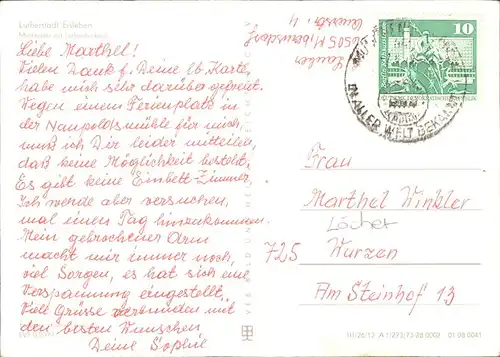 Lutherstadt Eisleben
Marktplatz mit Lutherdenkmal
6505 M/bernsdorf
10
DEUTSCHE DEMOKRATISCHE REPUBLIK
IN ALLER WELT BEKANNT
Liebe Marthel!
Vielen Dank f. Deine lb. Karte,
habe mich sehr darüber gefreut.
Wegen einem Ferienplatz in
der Naupoldsmühle für mich,
muß ich Dir leider mitteilen,
daß keine Möglichkeit besteht.
Es gibt keine Einbett-Zimmer.
Ich werde aber versuchen,
mal einen Tag hinzukommen.
Mein gebrochener Arm
macht mir immer noch,
viel Sorgen, es hat sich eine
Verspannung eingestellt.
Viele Grüsse verbunden mit
den besten Wünschen
Deine Sophie
VEB BILD UND HEIMAT
Frau
Marthel Winkler
Löcher
725 Wurzen
Am Steinhof 13
A 1/293/73-28 0002 01 08 0041